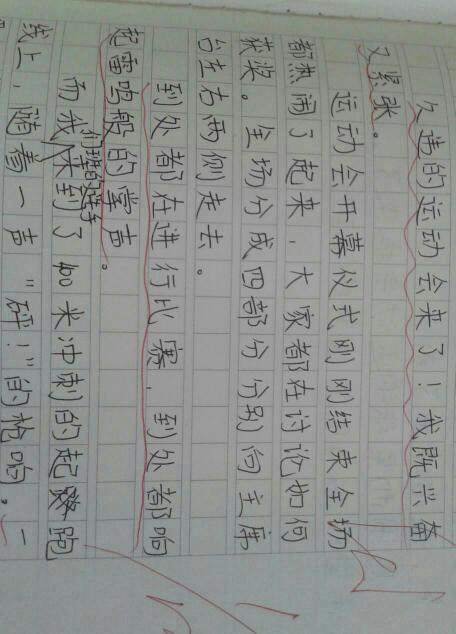 久违的运动会来了！我既兴奋
又紧张。
运动会开幕仪式刚刚结束全场
都热闹了起来，大家都在讨论如何
获奖。全场分成四部分分别向主席
台左右两侧走去。
到处都在进行比赛，到处都响
起雷鸣般的掌声。
而我们班的选手来到了400米冲刺的起跑
线上，随着一声"砰！"的枪响。一